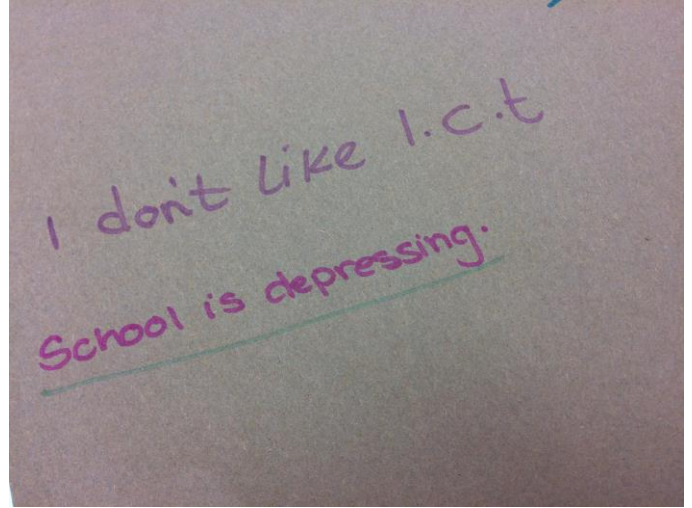 I don't like I.c.t
School is depressing.